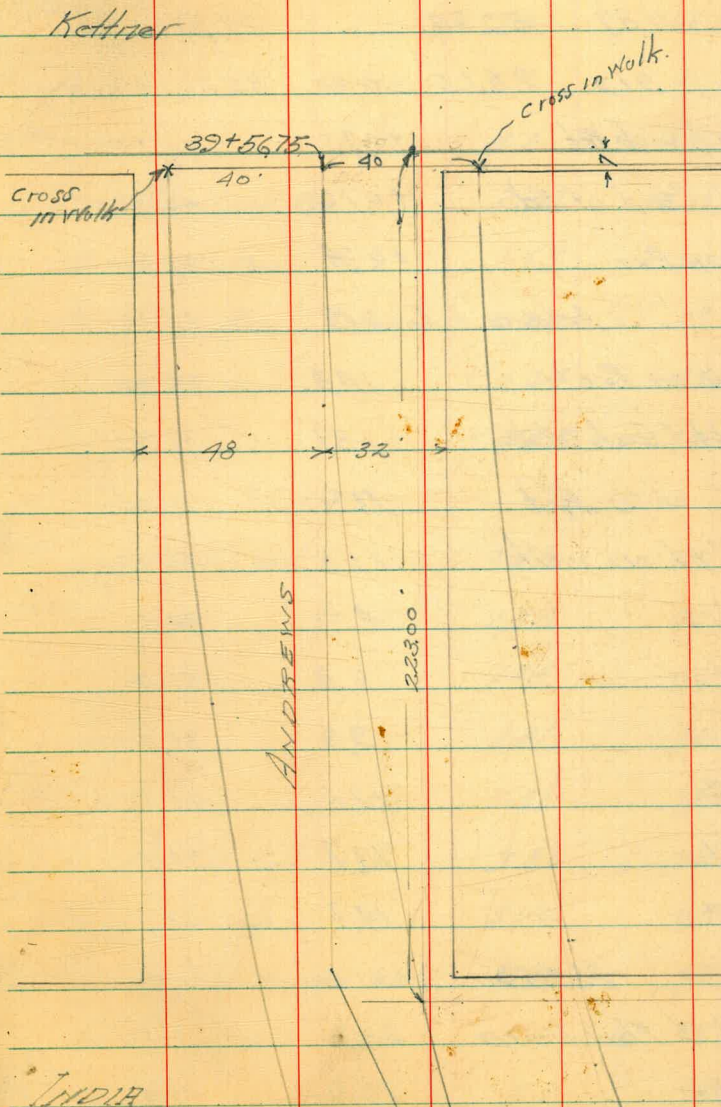 Kettner
Cross in Walk.
39+56.75
40
7
40'
Cross
in Walk
48'
32'
ANDREWS
223.00'
INDIA